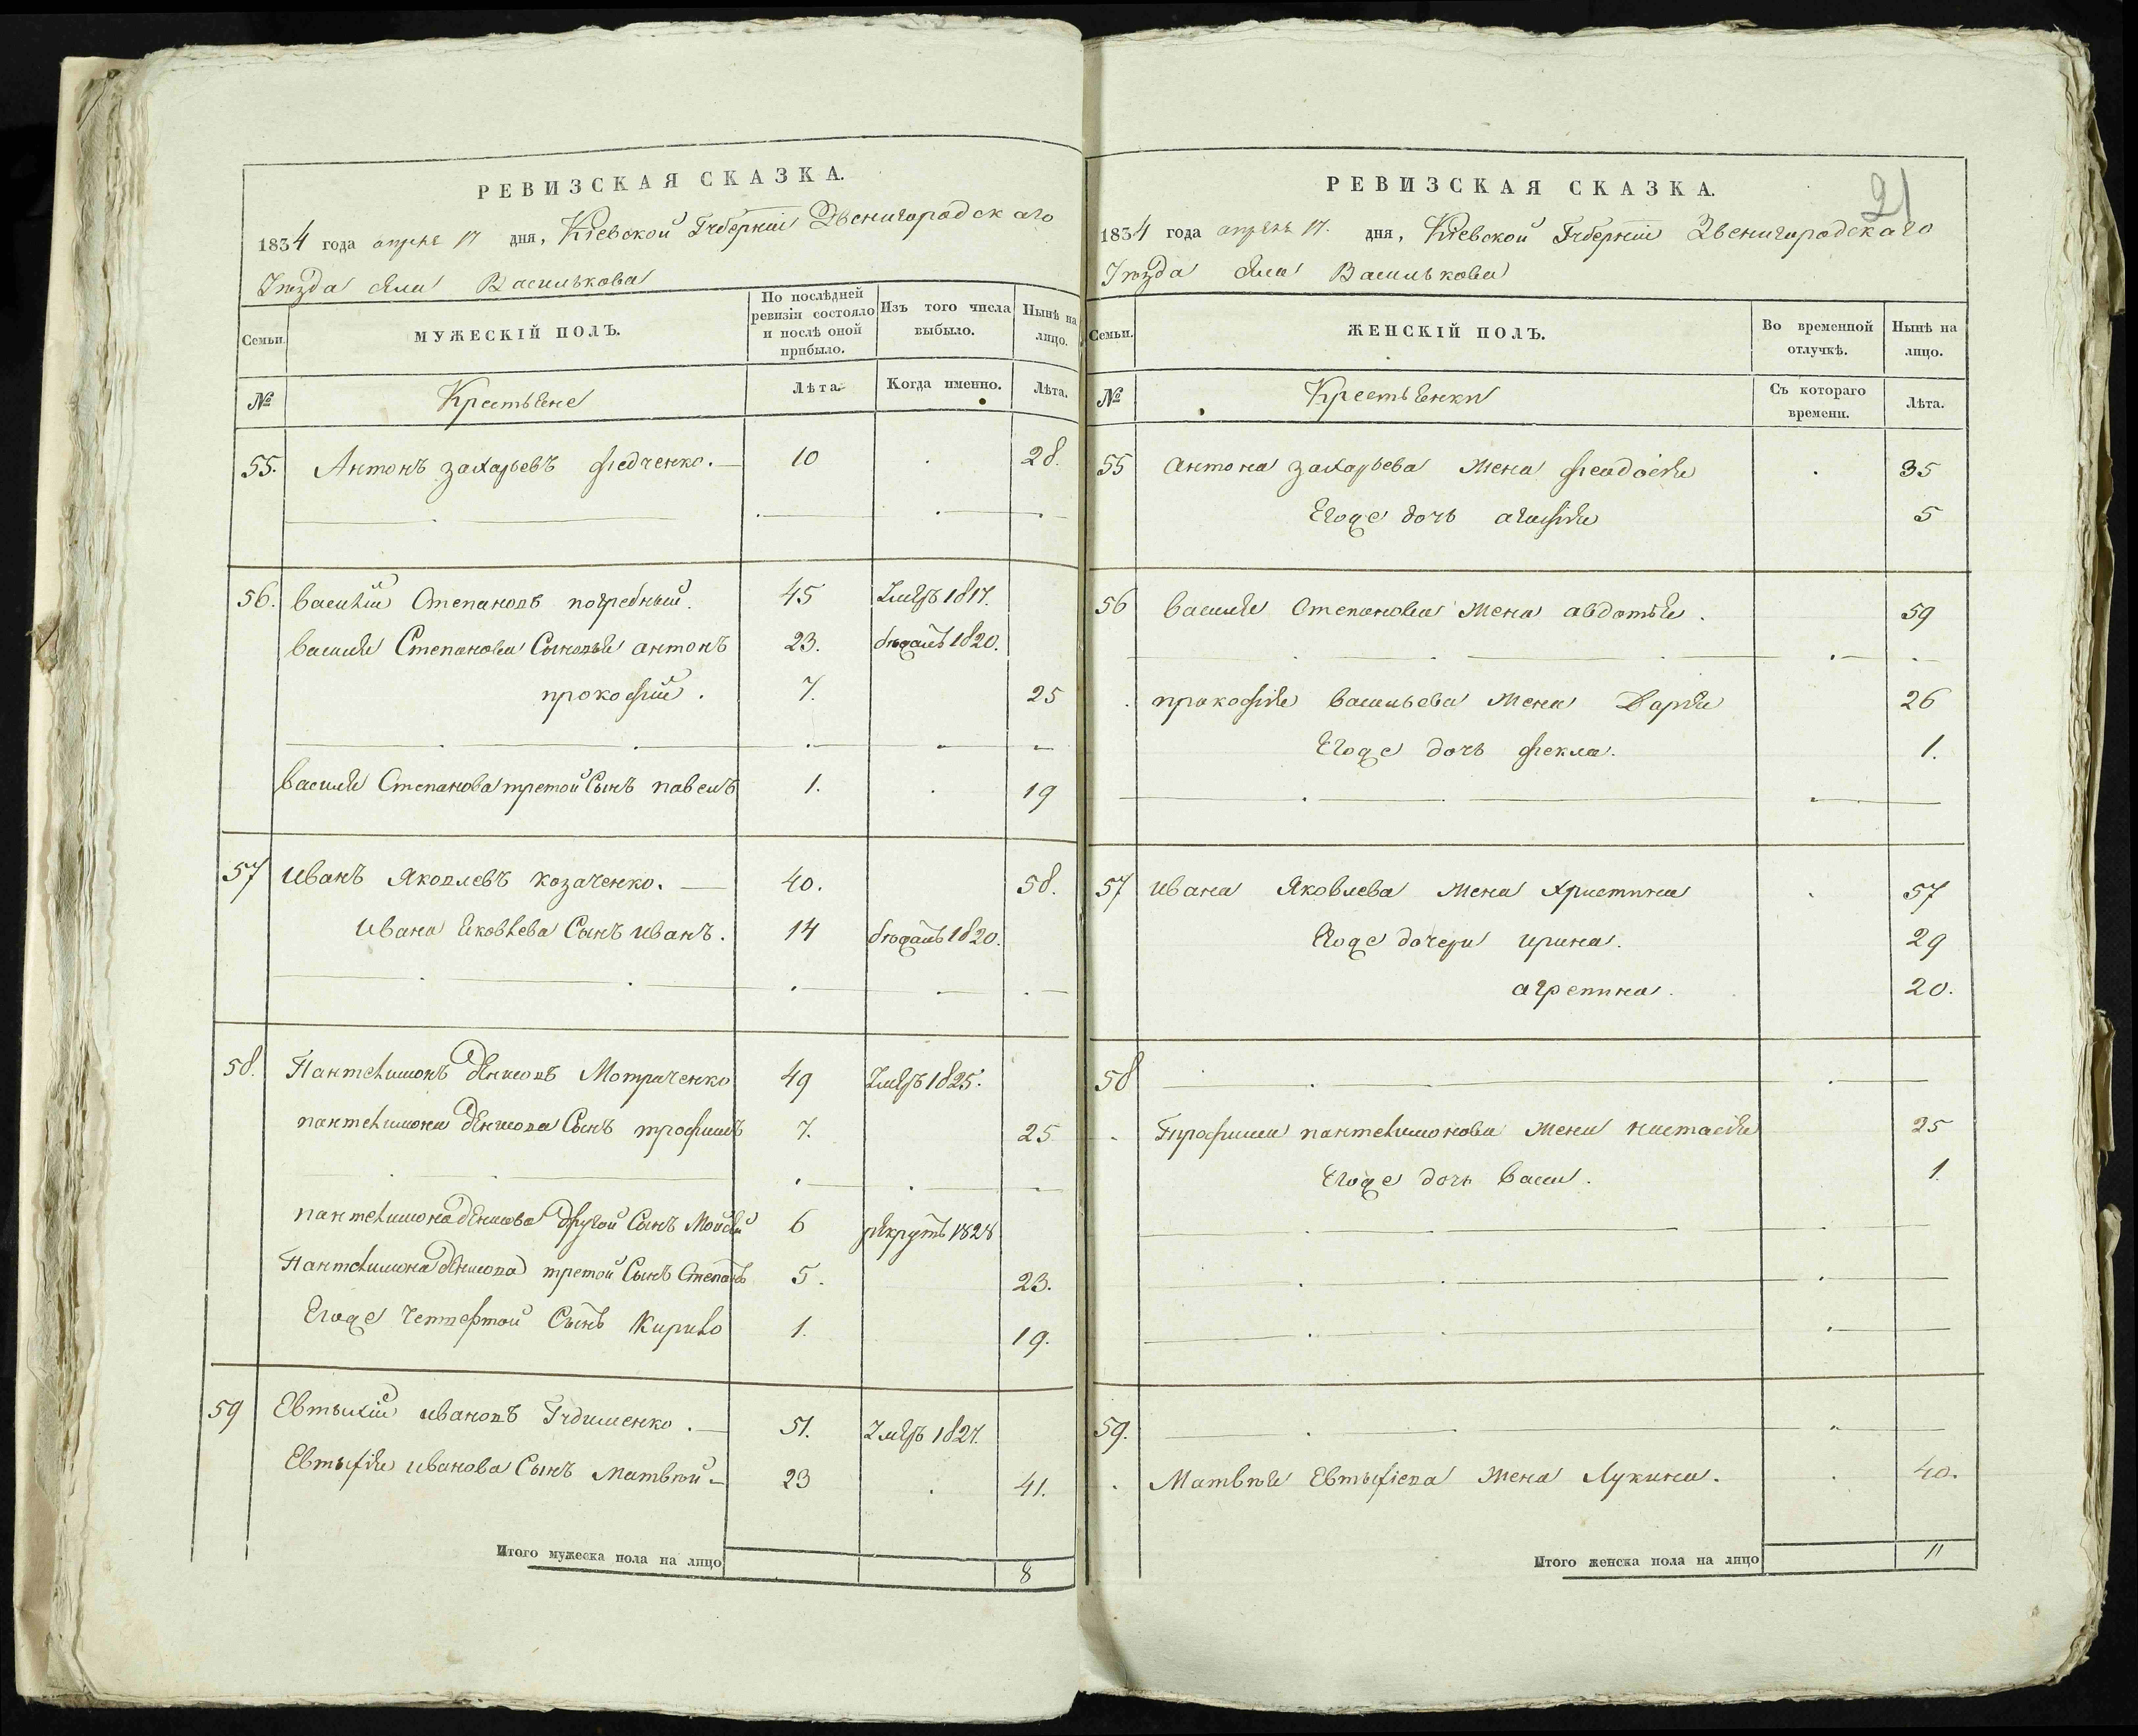 РЕВИЗСКАЯ СКАЗКА.
1834 года апреля 17 дня, Кіевской Губерніи Звенигородскаго
Уезда села Василькова
Семьи.
МУЖЕСКІЙ ПОЛЪ.
По послѣдней ревизіи состояло и послѣ оной прибыло.
Изъ того числа выбыло.
Нынѣ на лицо.
№
Крестьяне
Лѣта.
Когда именно.
Лѣта.
55. Антонъ захарьевъ федченко. 10 28.
56. василій Степановъ погребный. 45 Умеръ 1817.
василия Степанова Сыновья антонъ 23. 1820.
прокофій. 7. 25
василия Степанова третой Сынъ павелъ 1. 19
57 иванъ Яковлевъ козаченко. 40. 58.
ивана яковлева Сынъ иванъ. 14 1820.
58. Пантелимонъ денисовъ Мотриченко 49 Умеръ 1825.
пантелимона денисова Сынъ трофимъ 7. 25
пантелимона денисова другой Сынъ Мойсей 6 рекрутъ 1828
Пантелимона денисова третой Сынъ Степанъ 5. 23.
Егоже Четвертой Сынъ Кирило 1. 19.
59 Евтыхій ивановъ Гудименко. 51. Умеръ 1827.
Евтыхія иванова Сынъ матвей 23 41.
Итого мужеска пола на лицо 8
21
РЕВИЗСКАЯ СКАЗКА.
1834 года апреля 17. дня, Кіевской Губерніи Звенигородскаго
Уезда села Василькова
Семьи.
ЖЕНСКІЙ ПОЛЪ.
Во временной отлучкѣ.
Нынѣ на лицо.
№
Крестьянки
Съ котораго времени.
Лѣта.
55 антона захарьева жена феодосия 35
Егоже дочь агафия 5
56 василия Степанова жена авдотья. 59
прокофия васильева жена Дария 26
Егоже дочь фекла. 1.
57 ивана Яковлева жена христина 57
Егоже дочери ирина. 29
агрепина. 20.
58
Трофима пантелимонова жена настасия 25
Егоже дочь васса. 1
59.
Матвея Евтыхіева жена Лукина. 40.
Итого женска пола на лицо 11